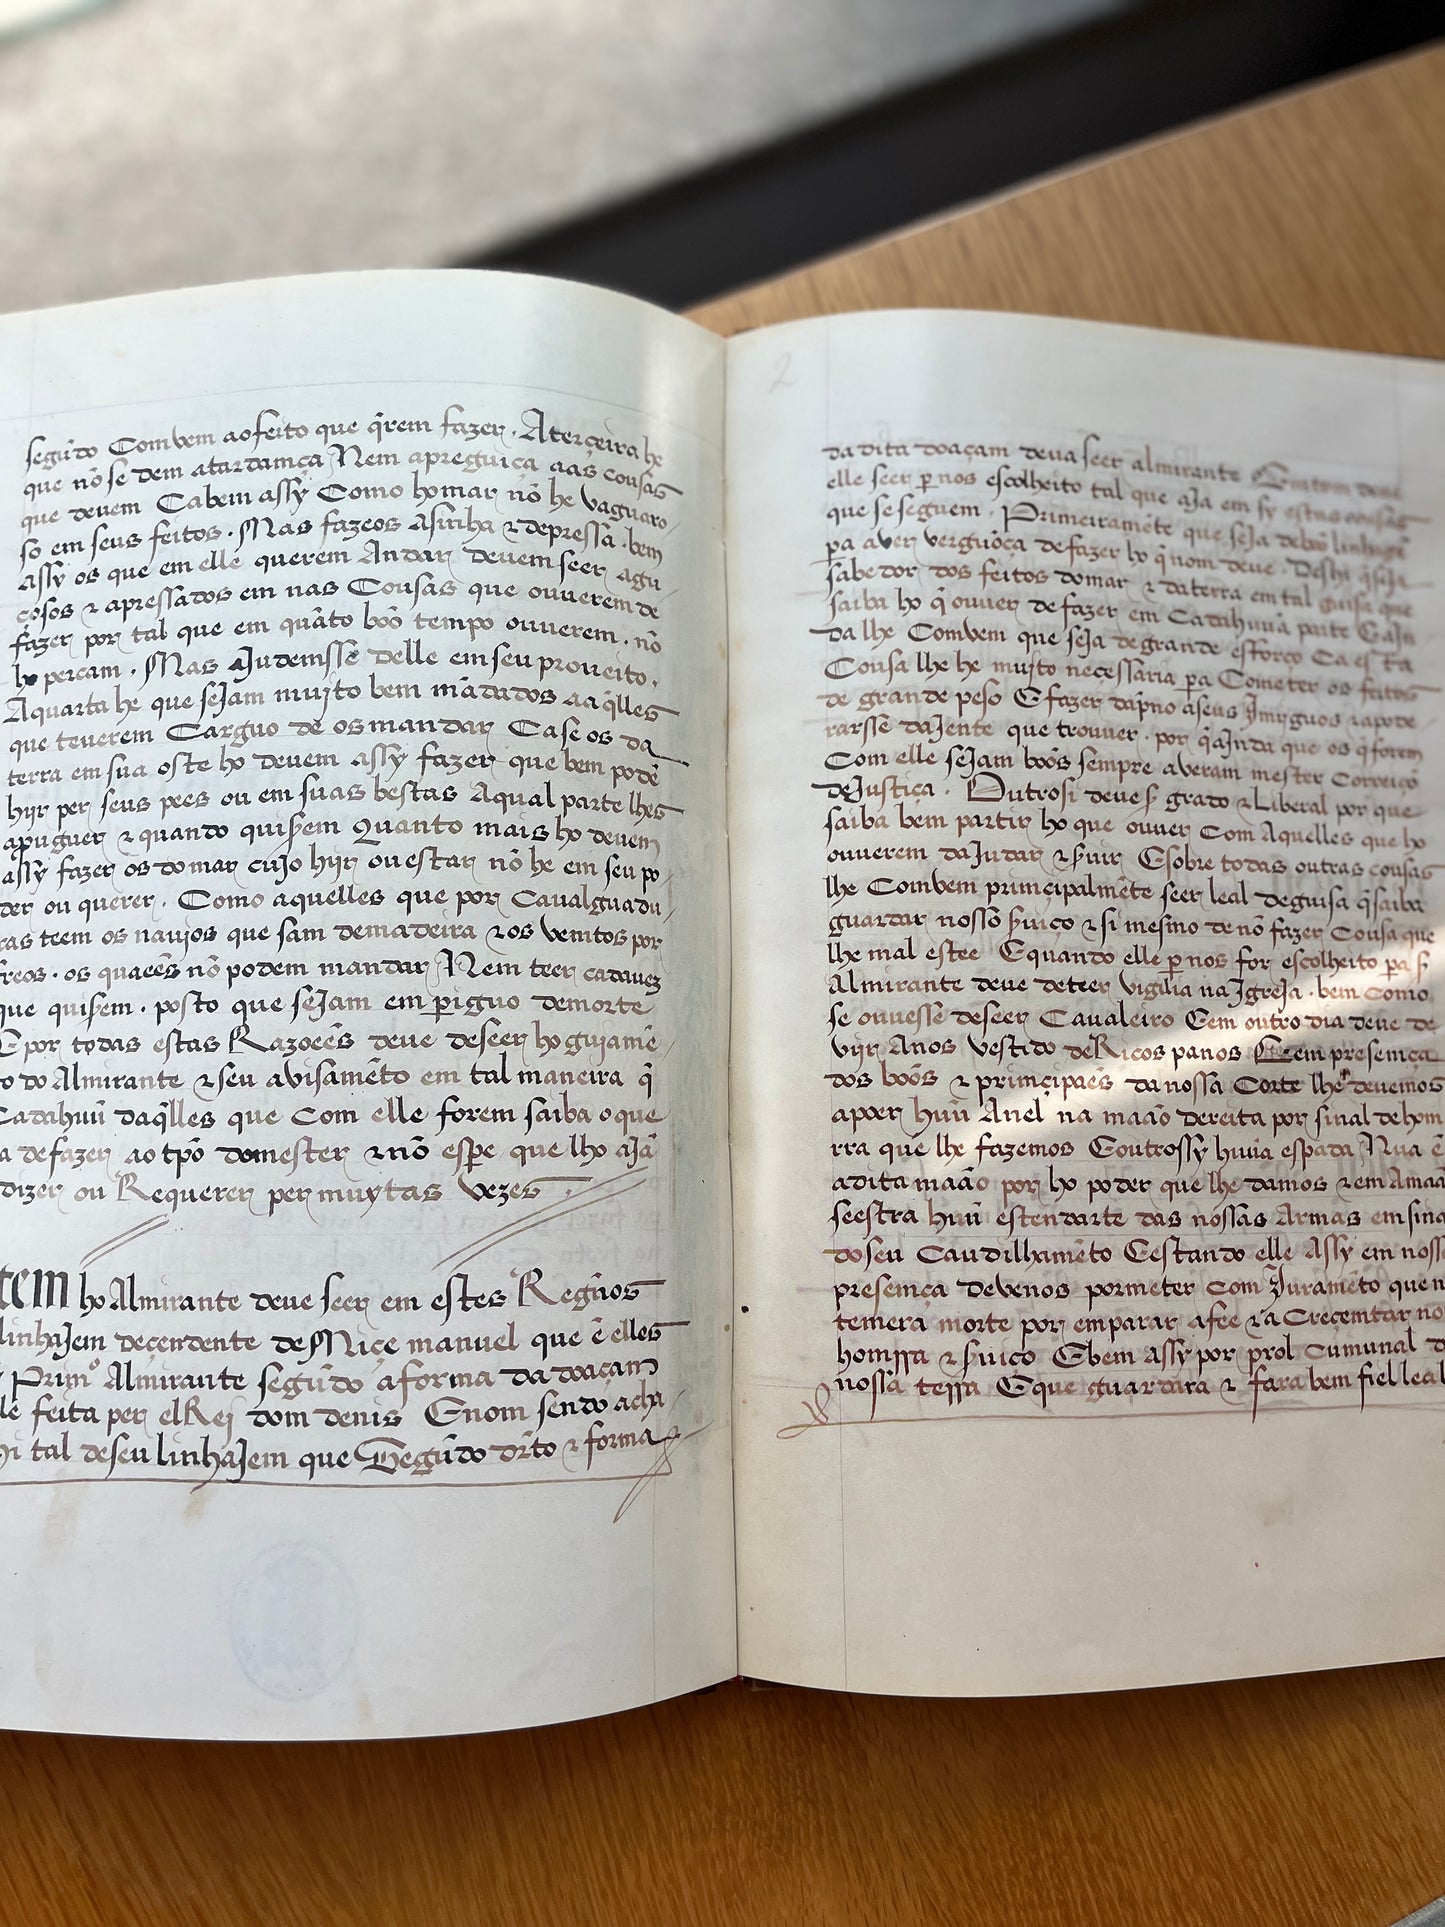 segũdo Comvem ao feito que q̃rem fazer . A terçeira he
que nõ se dem a tardamça Nem a preguiça aas cousas
que devem Cabem assy Como ho mar nõ he vaguaro
so em seus feitos . Mas fazeos Asinha & depressa . bem
Assy os que em elle querem Andar devem seer agu
çosos & apressados em nas Cousas que ouuerem de
fazer por tal que em quãto bõo tempo ouuerem . nõ
ho percam . Mas AJudemsse delle em seu proueito .
A quarta he que seJam mujto bem mãdados aaq̃lles
que teuerem Carguo de os mandar Ca se os da
terra em sua oste ho devem assy fazer que bem podẽ
hyr per seus pees ou em suas bestas A qual parte lhes
apuguer & quando quiserem Quanto mais ho devem
assy fazer os do mar cuJo hyr ou estar nõ he em seu po
der ou querer . Como aquelles que por Caualguadu
ras teem os nauios que sam de madeira & os ventos por
freos . os quaeẽs nõ podem mandar Nem teer cada vez
que quiserem . posto que seJam em periguo de morte
E por todas estas Razoeẽs deve de seer ho guiamẽ
to do Almirante & seu avisamẽto em tal maneira q̃
Cada huũ daq̃lles que Com elle forem saiba o que
a de fazer ao tpõ do mester & nõ espere que lho aJã
dizer ou Requerer per muytas vezes .
tem ho Almirante deve seer em estes Regnos
linhaJem deçendente de Miçe manuel que ẽ elles
Primro Almirante segũdo a forma da doaçam
le feita per elRei dom denis E nom sendo acha
hi tal de seu linhaJem que Segũdo dr̃to & forma
2
da dita doaçam deva seer almirante Emtom deve
elle seer per nos escolheito tal que aJa em sy estas cousas
que se seguem . Primeiramẽte que seJa de boo linhagẽ
pa aver vergõça de fazer ho q̃ nom deve . Deshi q̃ seJa
sabedor dos feitos do mar & da terra em tal guisa que
saiba ho q̃ ouver de fazer em Cada huũa parte E aJn
da lhe Comvem que seJa de grande esforço Ca esta
Cousa lhe he mujto necessaria pa Cometer os feitos
de grande peso E fazer dãpno a seus Jmyguos & apode
rarsse da Jente que trouuer . por q̃ aJnda que os q̃ forem
Com elle seJam boõs sempre averam mester Correiçõ
de Justiça . Outrosi deve ser grado & Liberal por que
saiba bem partir ho que ouver Com Aquelles que ho
ouuerem daJudar & seruir E sobre todas outras cousas
lhe Comvem prinçipalmẽte seer leal de guisa q̃ saiba
guardar nosso seruiço & si mesmo de nõ fazer Cousa que
lhe mal estee E quando elle per nos for escolheito pa ser
Almirante deve de teer vigilia na Jgreja . bem como
se ouuesse de seer Cavaleiro E em outro dia deve de
vijr A nos vestido de Ricos panos E em presemça
dos boõs & prinçipaẽs da nossa Corte lhe devemos
a poer huũ Anel na maão dereita por sinal de hom
rra que lhe fazemos E outrossy huũa espada Nua ẽ
a dita maão por ho poder que lhe damos & em A maã
seestra huũ estendarte das nossas Armas em sina
do seu Caudilhamẽto E estando elle Assy em nossa
presemça devenos pormeter Com Juramẽto que n
temera morte por emparar a fee & a Creçemtar no
homrra & seruiço E bem Assy por prol Cumunal d
nossa terra E que guardara & fara bem fiel leal